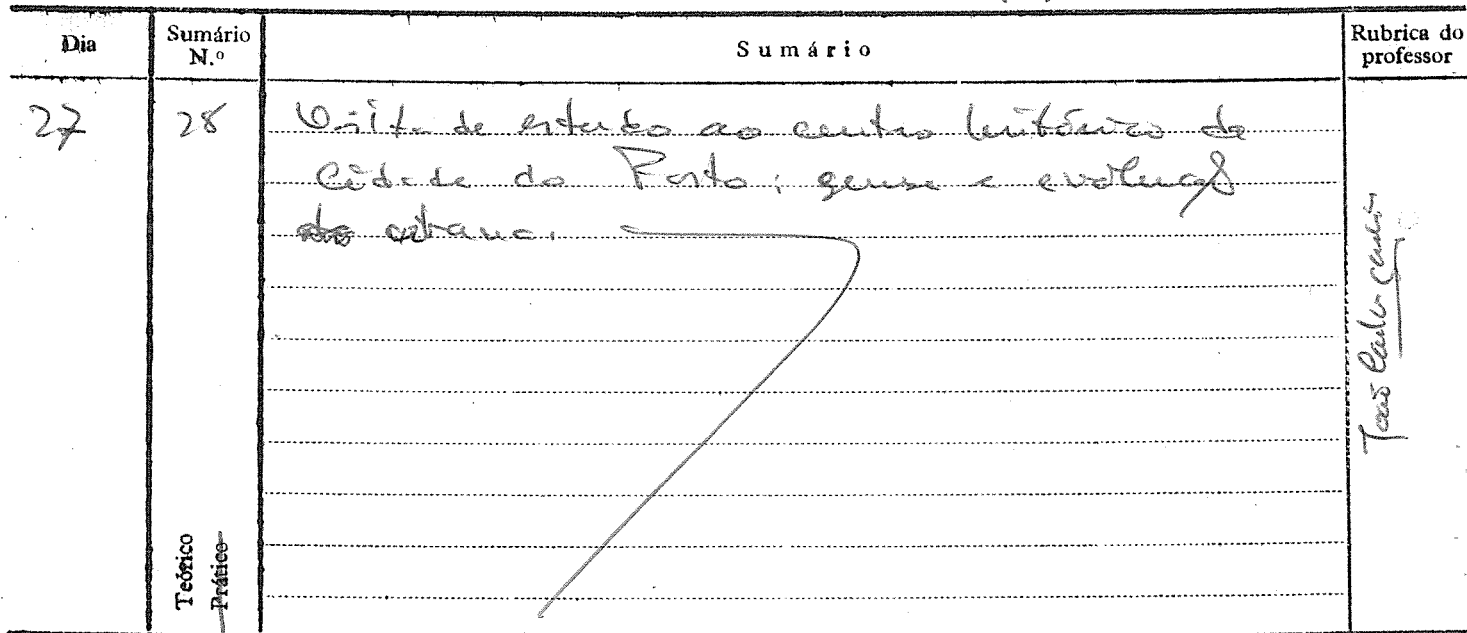 Dia
Sumário N.º
Sumário
Rubrica do professor
27
28
Visita de estudo ao centro histórico da
Cidade do Porto; génese e evolução
urbana.
João Carlos
Teórico
Prático